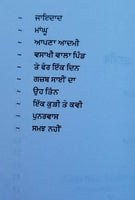 ~ ਜਾਇਦਾਦ
~ ਮਾਂਘੂ
~ ਆਪਣਾ ਆਦਮੀ
~ ਵਸਾਖੀ ਵਾਲਾ ਪਿੰਡ
~ ਤੇ ਫੇਰ ਇੱਕ ਦਿਨ
~ ਗਜ਼ਬ ਸਾਈਂ ਦਾ
~ ਉਹ ਤਿੰਨ
~ ਇੱਕ ਕੁੜੀ ਤੇ ਕਵੀ
~ ਪੁਨਰਵਾਸ
~ ਸਮਝ ਨਹੀਂ